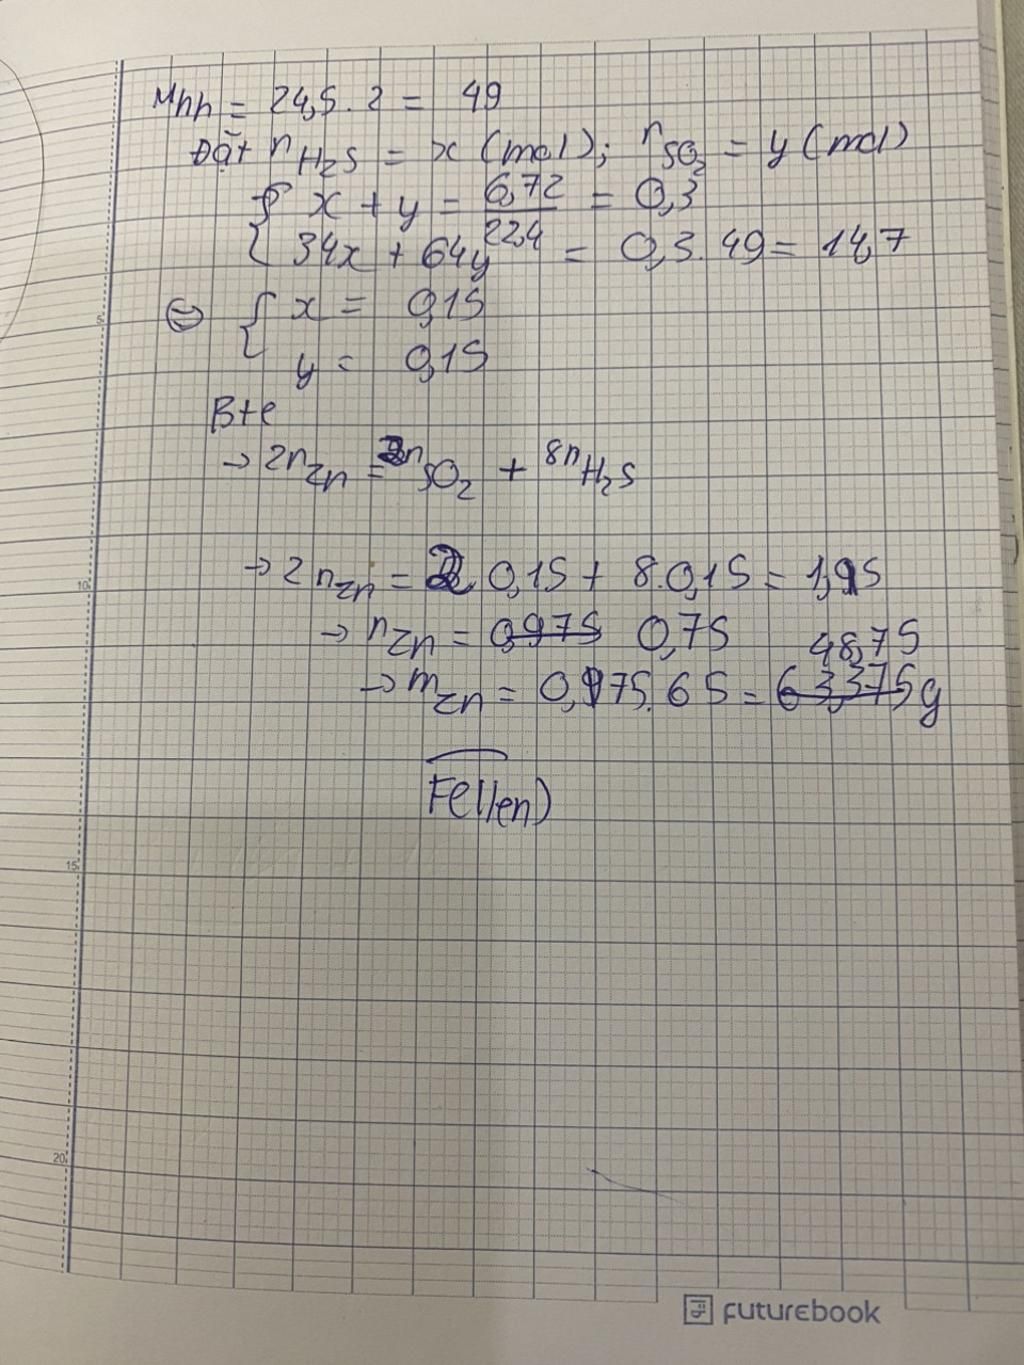 Mhh = 24,5 . 2 = 49
Đặt nH₂S = x (mol); nSO₂ = y (mol)
{ x + y = 6,72/22,4 = 0,3
{ 34x + 64y = 0,3 . 49 = 14,7
⇔ { x = 0,15
{ y = 0,15
Bte
→ 2nZn = 2nSO₂ + 8nH₂S
→ 2nZn = 2 0,15 + 8.0,15 = 1,5
→ nZn = 0,975 0,75
48,75
→ mZn = 0,75.65 = 63,375g
5
10
15
20
FUTUREBOOK